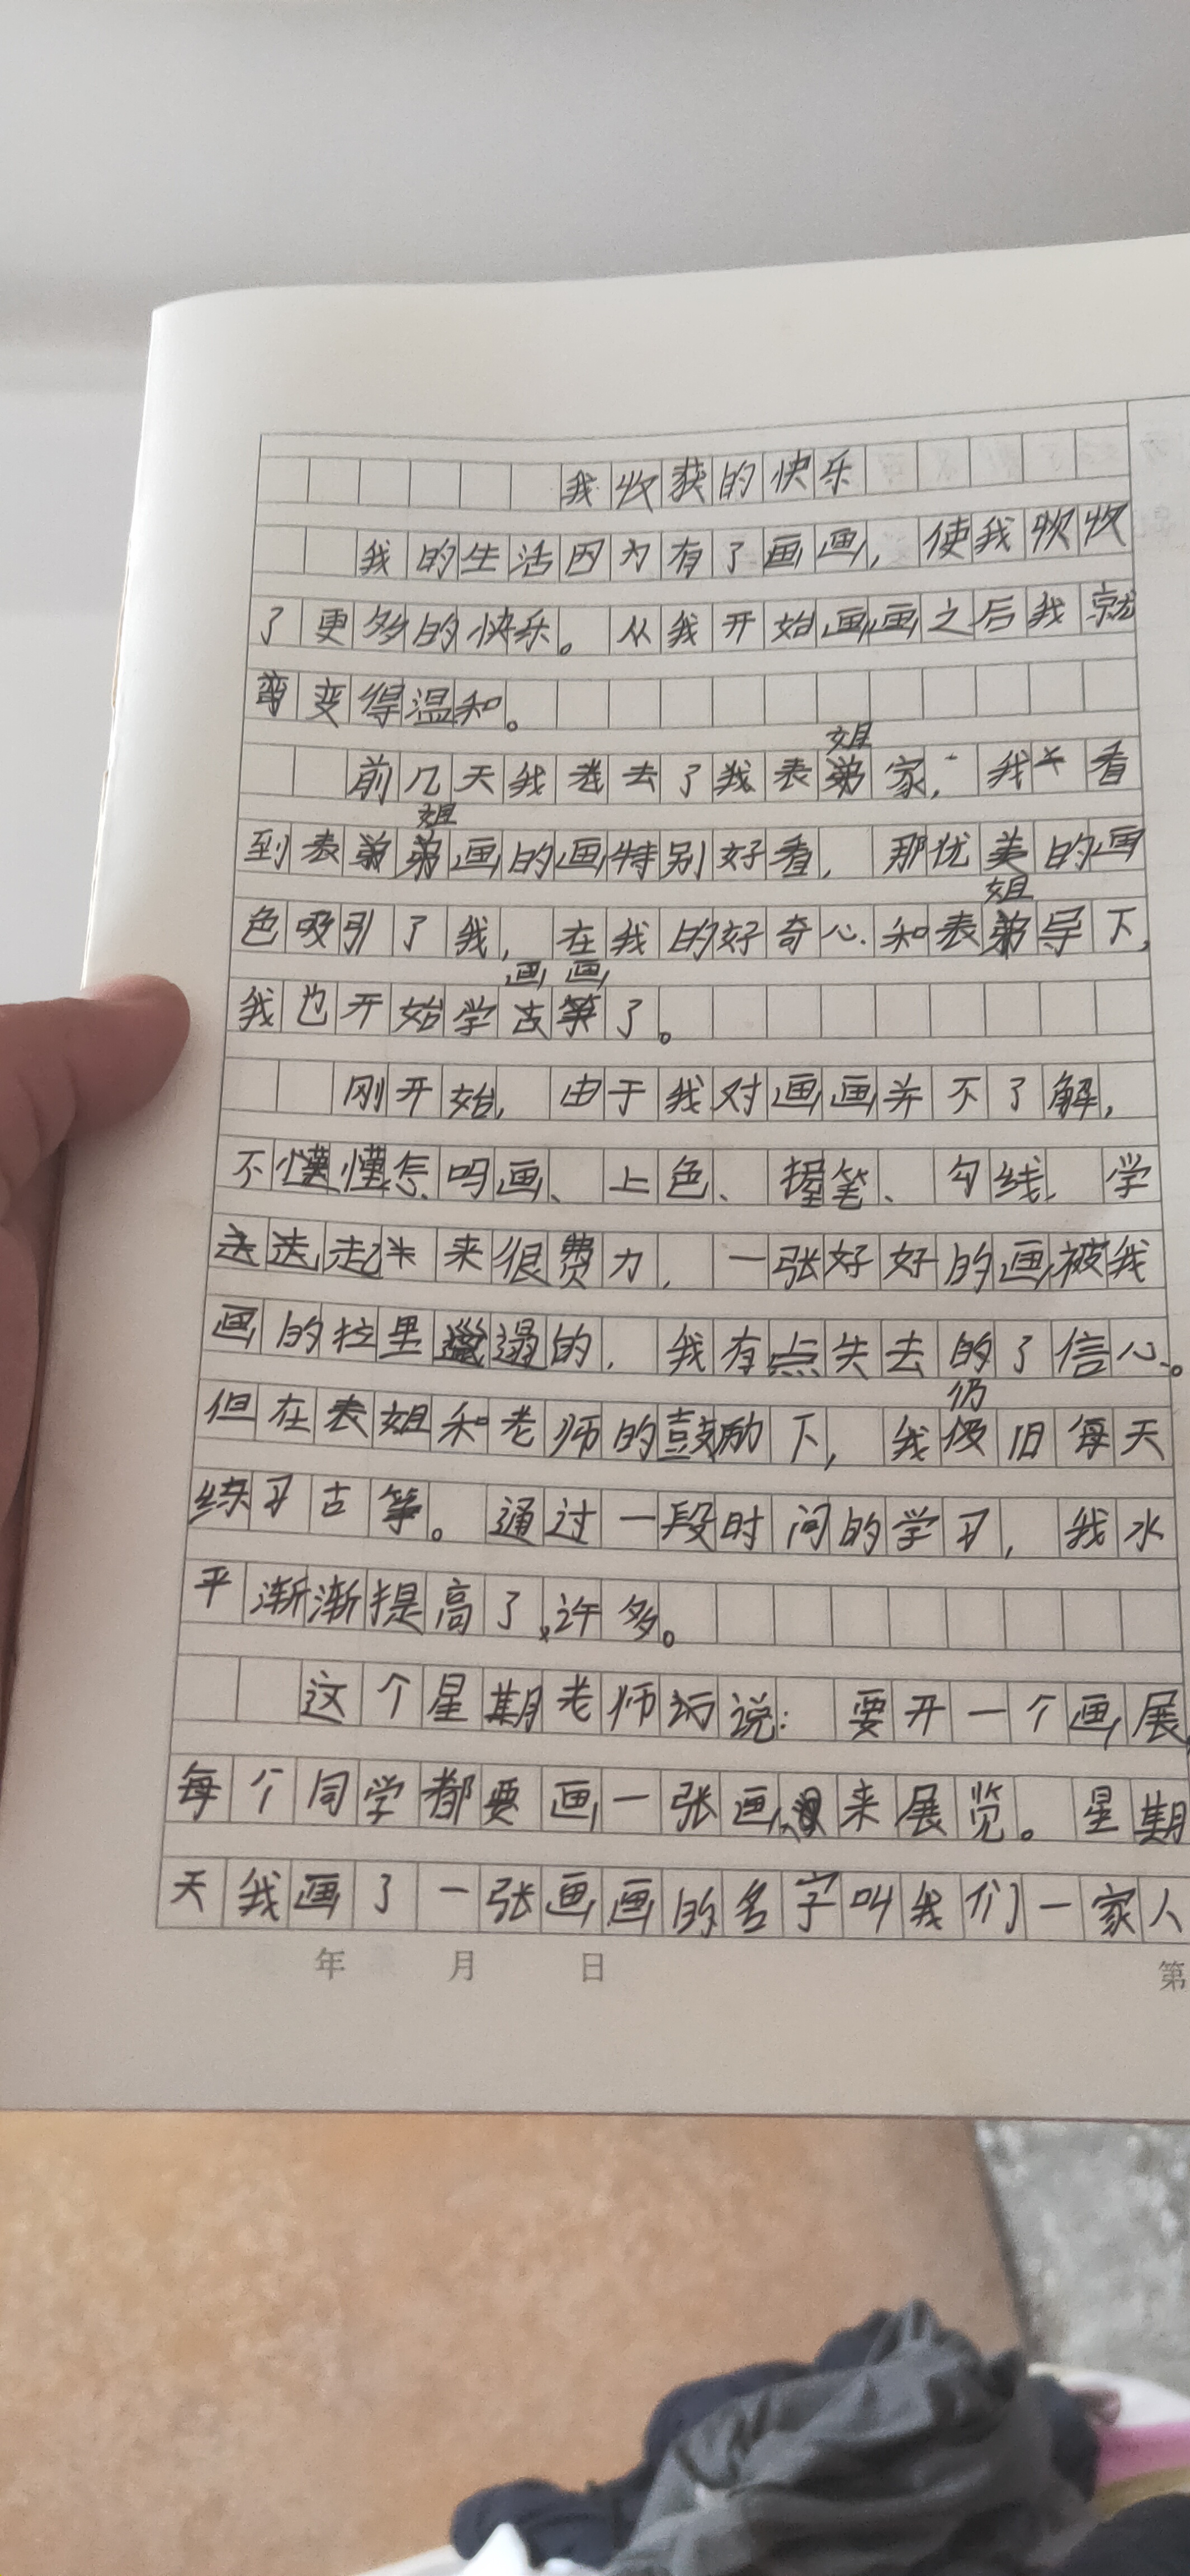 我收获的快乐
我的生活因为有了画画，使我收
了更多的快乐。从我开始画画之后我就
弯变得温和。
姐
前几天我去了我表弟家，我看
姐
到表弟弟画的画特别好看，那优美的画
姐
色吸引了我，在我的好奇心和表弟导下，
画画
我也开始学古筝了。
刚开始，由于我对画画并不了解，
不懂懂怎吗画、上色、握笔、勾线、学
起来很费力，一张好好的画被我
画的拉里邋遢的，我有点失去的了信心。
仍
但在表姐和老师的鼓励下，我旧每天
练习古筝。通过一段时间的学习，我水
平渐渐提高了，许多。
这个星期老师说：要开一个画展，
每个同学都要画一张画来展览。星期
天我画了一张画画的名字叫我们一家人
年 月 日 第